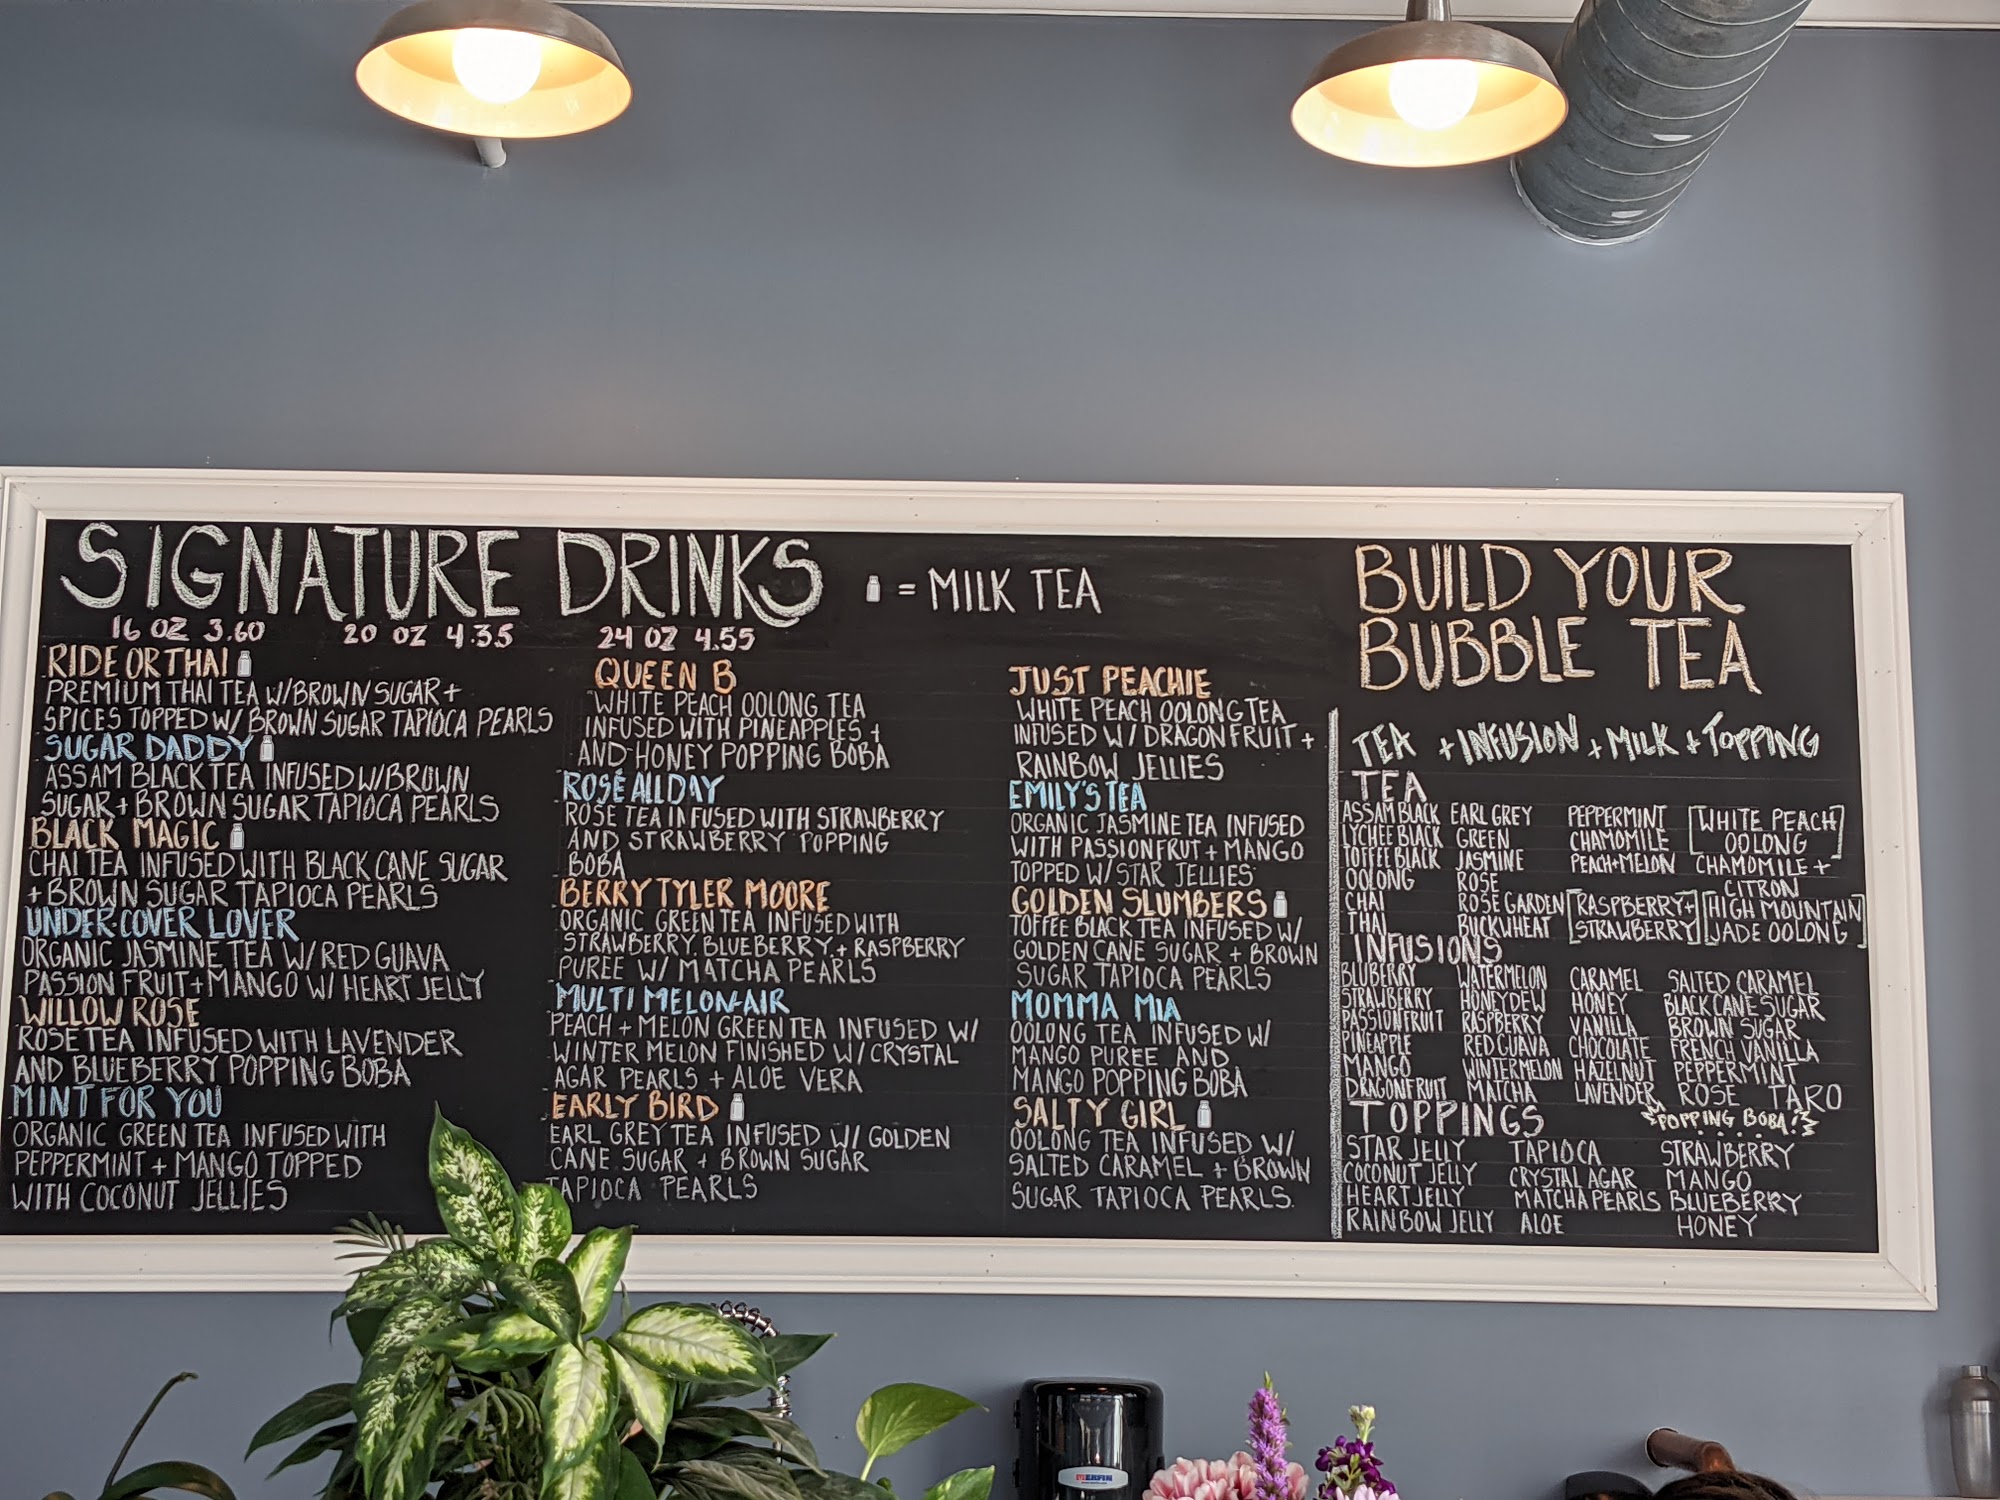 SIGNATURE DRINKS
= MILK TEA
16 OZ 3.60 20 OZ 4.35 24 OZ 4.55
RIDE OR THAI
PREMIUM THAI TEA W/BROWN SUGAR +
SPICES TOPPED W/ BROWN SUGAR TAPIOCA PEARLS
SUGAR DADDY
ASSAM BLACK TEA INFUSED W/BROWN
SUGAR + BROWN SUGAR TAPIOCA PEARLS
BLACK MAGIC
CHAI TEA INFUSED WITH BLACK CANE SUGAR
+ BROWN SUGAR TAPIOCA PEARLS
UNDER-COVER LOVER
ORGANIC JASMINE TEA W/ RED GUAVA
PASSION FRUIT + MANGO W/ HEART JELLY
WILLOW ROSE
ROSE TEA INFUSED WITH LAVENDER
AND BLUEBERRY POPPING BOBA
MINT FOR YOU
ORGANIC GREEN TEA INFUSED WITH
PEPPERMINT + MANGO TOPPED
WITH COCONUT JELLIES
QUEEN B
WHITE PEACH OOLONG TEA
INFUSED WITH PINEAPPLES +
AND HONEY POPPING BOBA
ROSÉ ALL DAY
ROSE TEA INFUSED WITH STRAWBERRY
AND STRAWBERRY POPPING
BOBA
BERRY TYLER MOORE
ORGANIC GREEN TEA INFUSED WITH
STRAWBERRY, BLUEBERRY, + RASPBERRY
PUREE W/ MATCHA PEARLS
MULTI MELON-AIR
PEACH + MELON GREEN TEA INFUSED W/
WINTER MELON FINISHED W/ CRYSTAL
AGAR PEARLS + ALOE VERA
EARLY BIRD
EARL GREY TEA INFUSED W/ GOLDEN
CANE SUGAR + BROWN SUGAR
TAPIOCA PEARLS
JUST PEACHIE
WHITE PEACH OOLONG TEA
INFUSED W/ DRAGON FRUIT +
RAINBOW JELLIES
EMILY'S TEA
ORGANIC JASMINE TEA INFUSED
WITH PASSIONFRUT + MANGO
TOPPED W/ STAR JELLIES
GOLDEN SLUMBERS
TOFFEE BLACK TEA INFUSED W/
GOLDEN CANE SUGAR + BROWN
SUGAR TAPIOCA PEARLS
MOMMA MIA
OOLONG TEA INFUSED W/
MANGO PUREE AND
MANGO POPPING BOBA
SALTY GIRL
OOLONG TEA INFUSED W/
SALTED CARAMEL + BROWN
SUGAR TAPIOCA PEARLS.
BUILD YOUR
BUBBLE TEA
TEA + INFUSION + MILK + TOPPING
TEA
ASSAM BLACK EARL GREY PEPPERMINT [WHITE PEACH
LYCHEE BLACK GREEN CHAMOMILE OOLONG]
TOFFEE BLACK JASMINE PEACH+MELON CHAMOMILE +
OOLONG ROSE CITRON
CHAI ROSE GARDEN [RASPBERRY+ [HIGH MOUNTAIN
THAI BUCKWHEAT STRAWBERRY] JADE OOLONG]
INFUSIONS
BLUBERRY WATERMELON CARAMEL SALTED CARAMEL
STRAWBERRY HONEYDEW HONEY BLACK CANE SUGAR
PASSIONFRUIT RASPBERRY VANILLA BROWN SUGAR
PINEAPPLE RED GUAVA CHOCOLATE FRENCH VANILLA
MANGO WINTERMELON HAZELNUT PEPPERMINT
DRAGONFRUIT MATCHA LAVENDER ROSE TARO
TOPPINGS POPPING BOBA!
STAR JELLY TAPIOCA STRAWBERRY
COCONUT JELLY CRYSTAL AGAR MANGO
HEART JELLY MATCHA PEARLS BLUEBERRY
RAINBOW JELLY ALOE HONEY